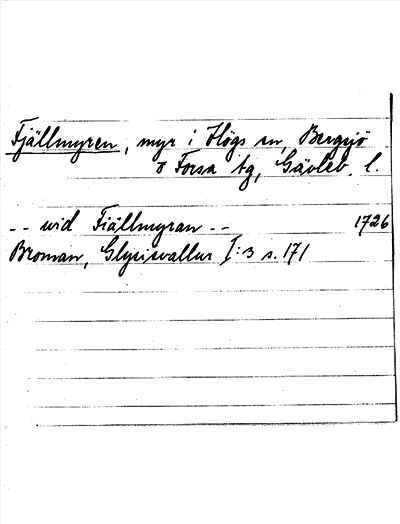 Fjällmyren, myr i Högs sn, Bergsjö
o Forsa tg, Gävleb. l.
-- wid Fiällmyran -- 1726
Broman, Glysisvallur I:3 s. 171